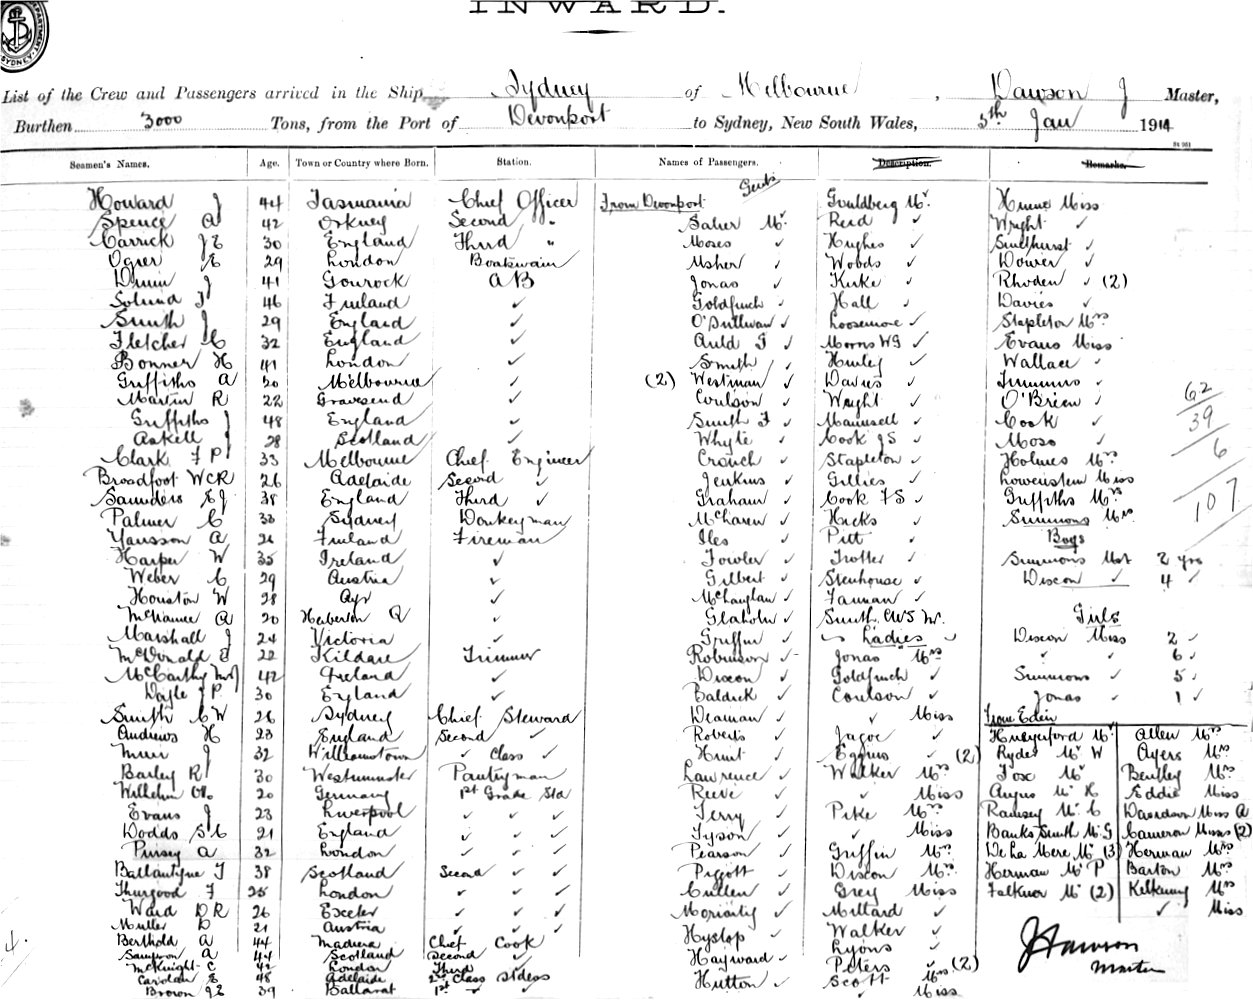 INWARD.
DEPARTMENT. SYDNEY.
List of the Crew and Passengers arrived in the Ship Sydney of Melbourne, Dawson J Master,
Burthen 3000 Tons, from the Port of Devonport to Sydney, New South Wales, 5th Jan 1914
Seamen's Names. Age. Town or Country where Born. Station. Names of Passengers. Description. Remarks.
Gents
Howard J 44 Tasmania Chief Officer From Devonport Guldberg Mr. Hume Miss
Spence A 42 Orkney Second " Baker Mr. Reid ✓ Wright ✓
Carrick J E 30 England Third " Moses ✓ Hughes ✓ Smethurst ✓
Ogier E 29 London Boatswain Usher ✓ Woods ✓ Dower ✓
J 41 Gourock A B Jonas ✓ Kirke ✓ Rhoden ✓ (2)
46 Finland ✓ Goldfinch ✓ Hall ✓ Davies ✓
Smith J 29 England ✓ O'Sullivan ✓ Loosemore ✓ Stapleton Mrs
Fletcher C 32 England ✓ Auld G ✓ Morris W G ✓ Evans Miss
Bonner H 41 London ✓ Smith ✓ Hurley ✓ Wallace ✓
Griffiths A 20 Melbourne ✓ (2) Westman ✓ Davies ✓ Simmins ✓
Martin R 22 Gravesend ✓ Coulson ✓ Wright ✓ O'Brien ✓
Griffiths J 48 England ✓ Smith F ✓ Maunsell ✓ Cook ✓
Askell J 28 Scotland ✓ Whyte ✓ Cook J S ✓ Moss ✓
Clark F P 33 Melbourne Chief Engineer Crouch ✓ Stapleton ✓ Holmes Mrs
Broadfoot W C R 26 Adelaide Second ✓ Jenkins ✓ Gillies ✓ Lowenstein Miss
Saunders E J 38 England Third ✓ Graham ✓ Cook F S ✓ Griffiths Mrs
Palmer C 33 Sydney Donkeyman McLaren ✓ Hicks ✓ Simmons Mrs
62
39
6
107
Yansson A 26 Finland Fireman Iles ✓ Pitt ✓ Boys
Harper W 35 Ireland ✓ Fowler ✓ Trotter ✓ Simmons Mst 2 yrs
Weber C 29 Austria ✓ Gilbert ✓ Stenhouse ✓ Dixon ✓ 4 ✓
Houston W 28 Ayr ✓ McLauglan ✓ Fannan ✓
McNamee A 20 Herberton Q ✓ Glaholm ✓ Smith, C W S Mr. Girls
Marshall J 24 Victoria ✓ Griffin ✓ Ladies Dixon Miss 2 ✓
McDonald E 22 Kildare Trimmer Robinson ✓ Jonas Mrs ✓ ✓ 6 ✓
McCarthy 42 Ireland ✓ Dixon ✓ Goldfinch ✓ Simmons ✓ 5 ✓
Doyle J P 30 England ✓ Baldick ✓ Coulson ✓ Jonas ✓ 1 ✓
Smith C W 26 Sydney Chief Steward Deaman ✓ ✓ Miss From Eden
Andrews H 23 England Second ✓ Roberts ✓ Jagoe ✓ Hungerford Mr. Allen Mrs
Muir J 32 Williamstown ✓ Class ✓ Hunt ✓ Eggins ✓ (2) Ryder Mr W Ayers Mrs
Bailey R 30 Westminster Pantryman Lawrence ✓ Walker Mrs Fox Mr Bentley Mrs
20 Germany 1st Grade Sta Reeve ✓ ✓ Miss Angus Mr K Eddie Miss
Evans J 23 Liverpool ✓ ✓ ✓ Terry ✓ Pike Mrs Ramsey Mr C Davidson Miss A
Dodds S C 21 England ✓ ✓ ✓ Tyson ✓ ✓ Miss Banks Smith Mr G Cameron Misses (2)
Pinsey A 32 London ✓ ✓ ✓ Pearson ✓ Griffin Mrs De La Mere Mr (3) Herman Mrs
Ballantyne T 38 Scotland Second ✓ ✓ Piggott ✓ Dixon Mrs Herman Mr P Barton Mrs
Thurgood F 25 London ✓ ✓ ✓ Cullen ✓ Grey Miss Falknor Mr (2) Kilkenny Mrs
Ward D R 26 Exeter ✓ ✓ ✓ Moriarty ✓ Millard ✓ ✓ Miss
Muller D 21 Austria ✓ ✓ ✓ Hyslop ✓ Walker ✓
Berthold A 44 Madeira Chief Cook Lyons ✓
Sampson A 44 Scotland Second ✓ Hayward ✓ Peters ✓ (2)
McKnight C 42 London Third ✓ Hutton ✓ Scott Mrs
E 48 Adelaide 2nd Class Stdess ✓ Miss
Brown J E 39 Ballarat 1st ✓ ✓
J Dawson
Master